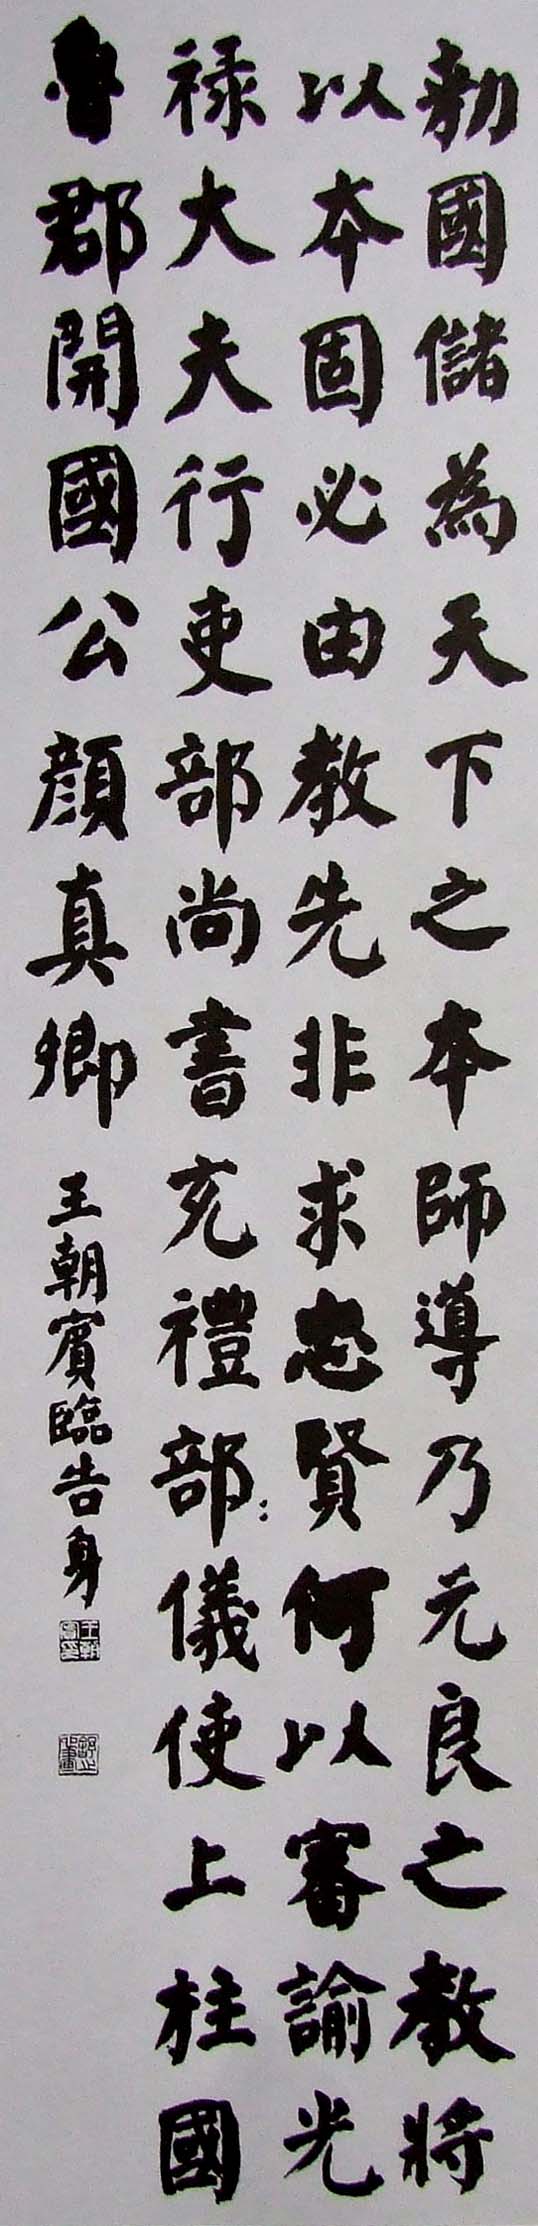 勅國儲為天下之本師導乃元良之教將
以本固必由教先非求忠賢何以審諭光
禄大夫行吏部尚書充禮部儀使上柱國
魯郡開國公顔真卿
王朝賓臨告身